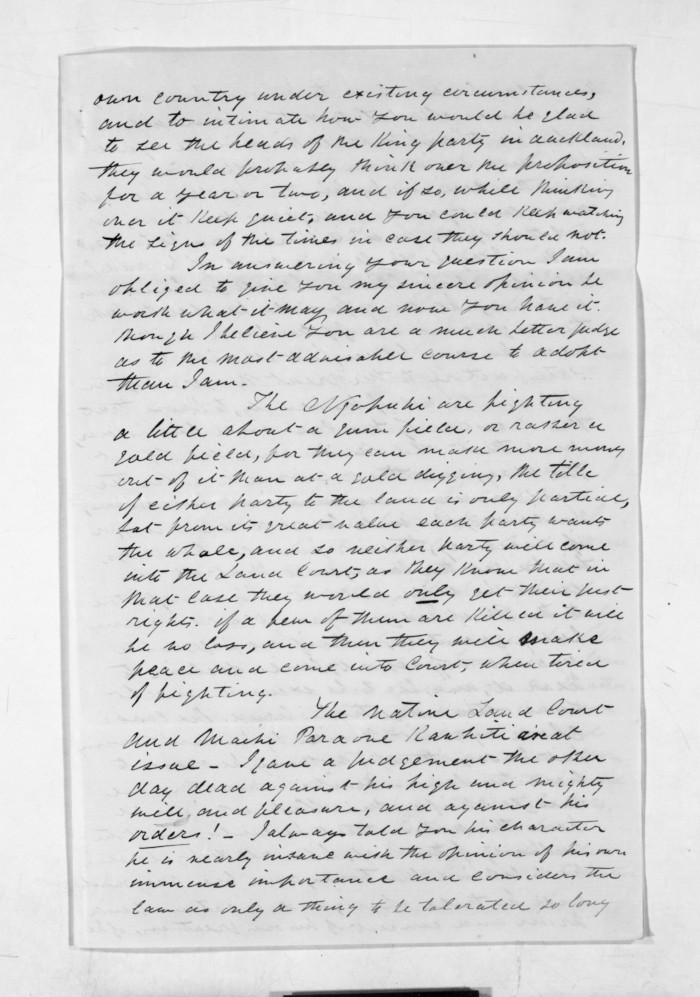 own country under existing circumstances,
and to intimate how you would be glad
to see the heads of the King party in Auckland.
they would probably think over the proposition
for a year or two, and if so, while thinking
over it keep quiet, and you could keep watching
the signs of the times in case they should not.
In answering your question I am
obliged to give you my sincere opinion be
worth what it may and now you have it.
though I believe you are a much better judge
as to the most adviseable course to adopt
than I am.
The Ngapuhi are fighting
a little about a gum field, or rather a
gold field, for they can make more money
out of it than at a gold digging, the title
of either party to the land is only partial,
but from its great value each party wants
the whole, and so neither party will come
into the Land Court, as they know that in
that case they would only get their just
rights. if a few of them are killed it will
be no loss, and then they will make
peace and come into Court, when tired
of fighting.
The Native Land Court
and Maihi Paraone Kawhiti is at
issue - I gave a judgement the other
day dead against his high and mighty
will, and pleasure, and against his
orders! - I always told you his character
he is nearly insane with the opinion of his own
immense importance and considers the
law as only a thing to be tolerated so long